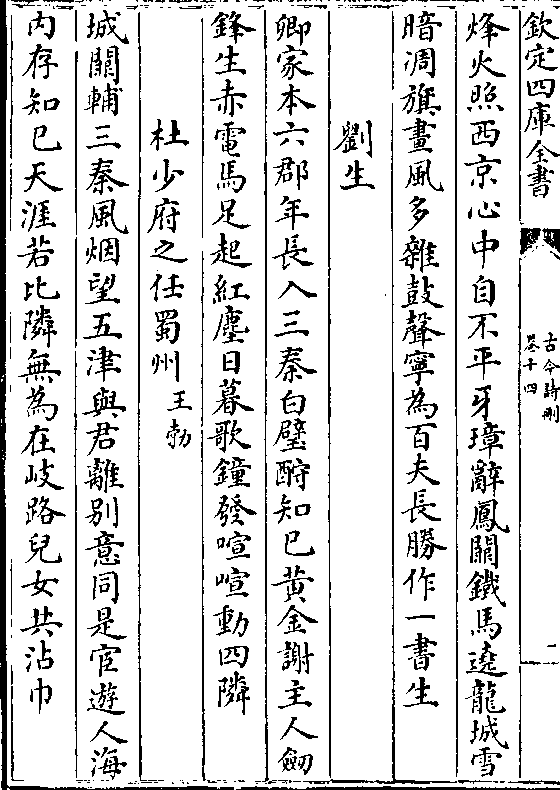 欽定四庫全書
古今詩刪
卷十四
二
烽火照西京心中自不平牙璋辭鳳闕鐵馬遶龍城雪
暗凋旗畫風多雜鼓聲寧為百夫長勝作一書生
劉生
卿家本六郡年長入三秦白璧酧知已黃金謝主人劒
鋒生赤電馬足起紅塵日暮歌鐘發喧喧動四隣
杜少府之任蜀州王勃
城闕輔三秦風烟望五津與君離別意同是宦遊人海
內存知已天涯若比隣無為在岐路兒女共沾巾